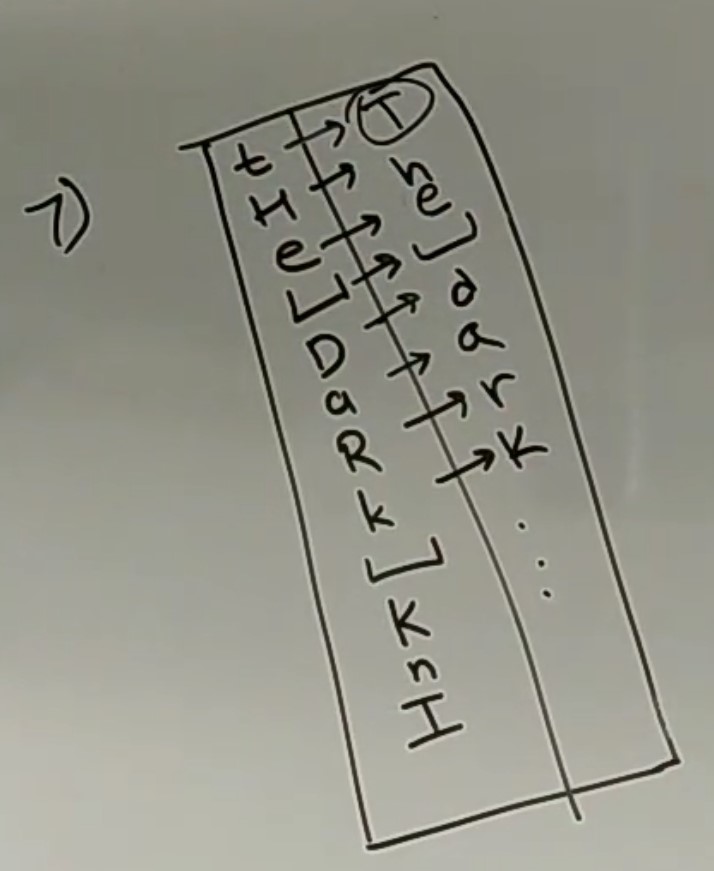 7)
t → T
H → h
e → e
␣ → ␣
D → d
a → a
R → r
k → k
␣
K
n
I